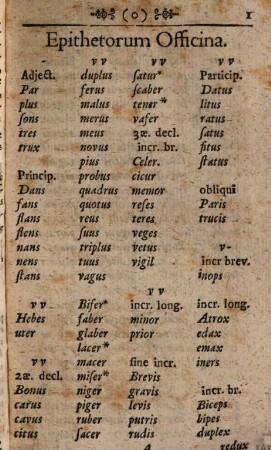 (o) 1
Epithetorum Officina.
- v v v v v v
Adject. duplus satur* Particip.
Par ferus scaber Datus
plus malus tener* litus
sons merus vafer ratus
tres meus 3æ. decl. satus
trux novus incr. br. situs
pius Celer. status
Princip. probus cicur
Dans quadrus memor obliqui
fans quotus reses Paris
flans reus teres trucis
flens suus veges
nans triplus vetus v-
nens tuus vigil incr brev.
stans vagus inops
v v
v v Bifer* incr. long. incr. long.
Hebes faber minor Atrox
uter glaber prior edax
lacer* emax
v v macer sine incr. iners
2æ. decl. miser* Brevis
Bonus niger gravis incr. br.
carus piger levis Biceps
cavus ruber putris bipes
citus sacer rudis duplex
A redux